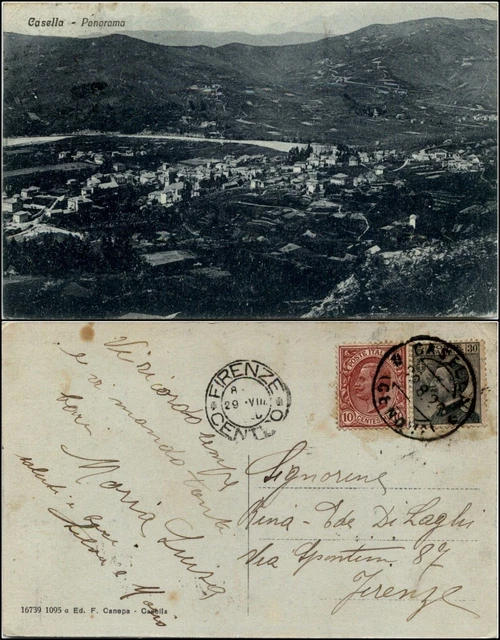 Casella - Panorama
Vi ricordo sempre
e vi mando tanti
Maria Luisa
saluti e
FIRENZE
8
29·VIII
CENTRO
POSTE ITAL
10 CENTES
30
CASELLA
Signorina
Rina - Ede Di Laghi
Via Spontini 87
Firenze
16739 1095 a Ed. F. Canepa - Casella